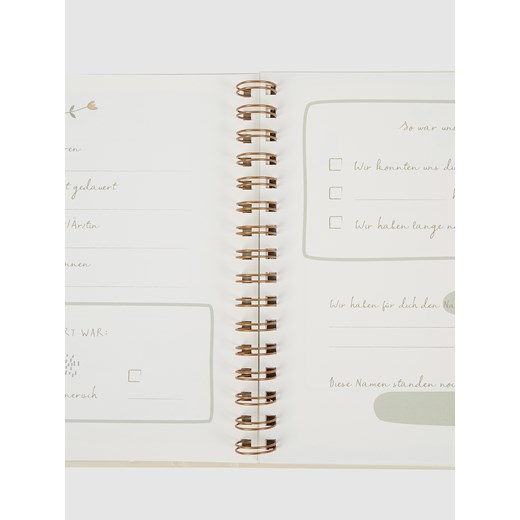 ren
t gedauert
/Ärztin
nnen
RT WAR:
nerisch
So war uns
Wir konnten uns d
Wir haben lange n
Wir haben für dich den Na
Diese Namen standen noc